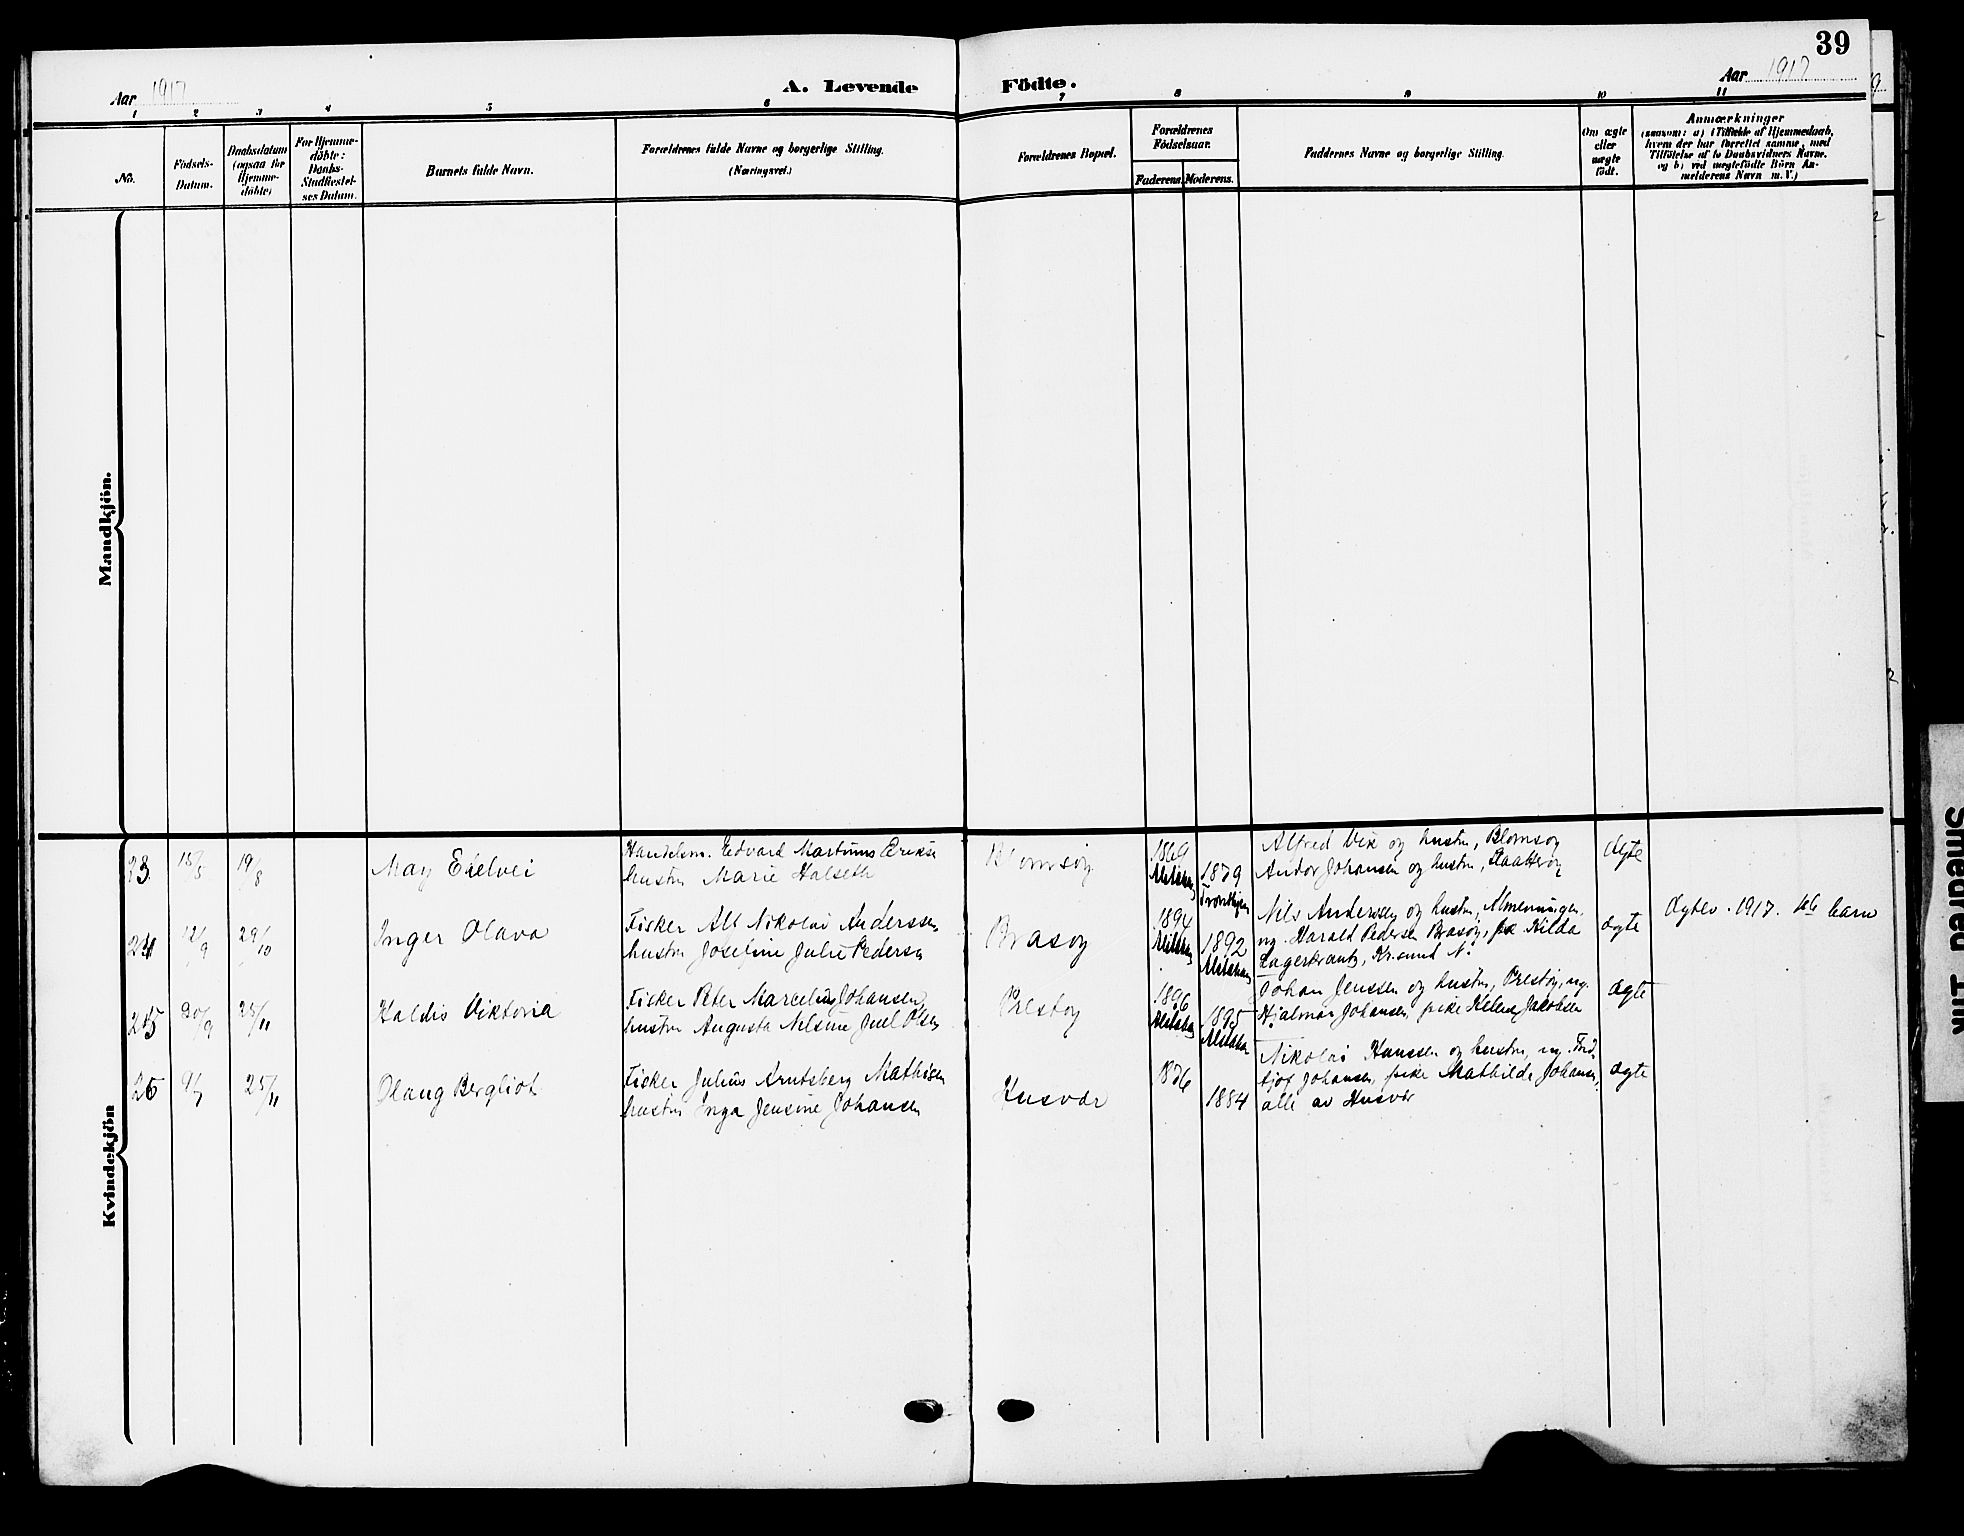 39
Aar 1917
A. Levende Födte.
Aar 1917
1 2 3 4 5 6 7 8 9 10 11
No.
Födsels-
Datum.
Daabsdatum
(ogsaa for
Hjemme-
döbte)
For Hjemme-
döbte:
Daabs-
Stadfæstel-
ses Datum.
Barnets fulde Navn.
Forældrenes fulde Navne og borgerlige Stilling.
(Næringsvei.)
Forældrenes Bopæl.
Forældrenes
Födselsaar.
Faderens. Moderens.
Faddernes Navne og borgerlige Stilling.
Om ægte
eller
uægte
födt.
Anmærkninger
(saasom: a) i Tilfælde af Hjemmedaab,
hvem der har forrettet samme, med
Tilföielse af to Daabsvidners Navne,
og b) ved uægtefödte Börn An-
melderens Navn m. V.)
Mandkjön.
Kvindekjön
23 15/5 19/8
May Eielvei
Handelsm. Edvard Martinus
hustru Marie Halseth
Blomsøy
1869
1879
Alfred Vik og hustru, Blomsøy
Andor Johansen og hustru,
ægte
24 12/9 29/10
Inger Olava
Fisker Alf Nikolai Anderssen
hustru Josefine Julie Pedersen
Brasøy
1894
1892
Alstahaug
Nils Anderssen og hustru, Almenningen,
ug. Harald Pedersen Brasøy, pk Hilda
Lagerkrantz, Kr.sund N.
ægte
Døbt. 1917. 46 barn
25 20/9 25/11
Haldis Viktoria
Fisker Peter Marcelius Johansen,
hustru Augusta Nilsine Juel Olsen
Prestøy
1896
1895
Johan Jenssen og hustru, Prestøy, ug.
Hjalmar Johansen, pike Helene Jakobsen
ægte
26 9/7 25/11
Olaug Bergliot
Fisker Julius Arntsberg Mathisen
hustru Inga Jensine Johansen
Husvær
1876
1884
Nikolai Hanssen og hustru, ug. Frid.
tjof Johansen, pike Mathilde Johansen,
alle av Husvær
ægte